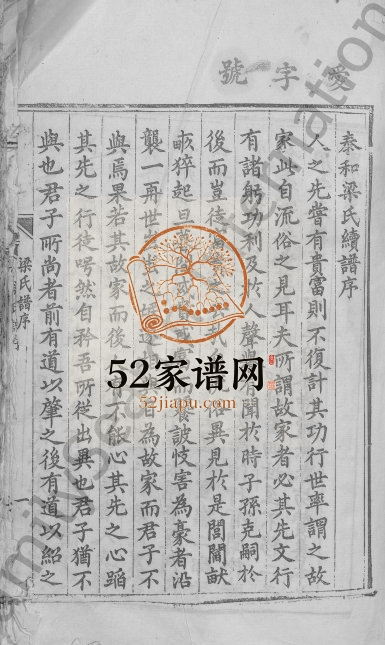 愛字號
泰和梁氏續譜序
人之先嘗有貴富則不復計其功行世率謂之故
家此自流俗之見耳夫所謂故家者必其先文行
有諸躬功利及於人聲聞於時子孫克嗣於
後而豈徒俗異見於是閭閻畎
畝猝起旦詖忮害為豪者沿
襲一再世為故家而君子不
與焉果若其故家而後不能心其先之心蹈
其先之行徒咢然自矜吾所從出異也君子猶不
與也君子所尚者前有道以肇之後有道以紹之
梁氏譜序
一
52家谱网
52jiapu.com